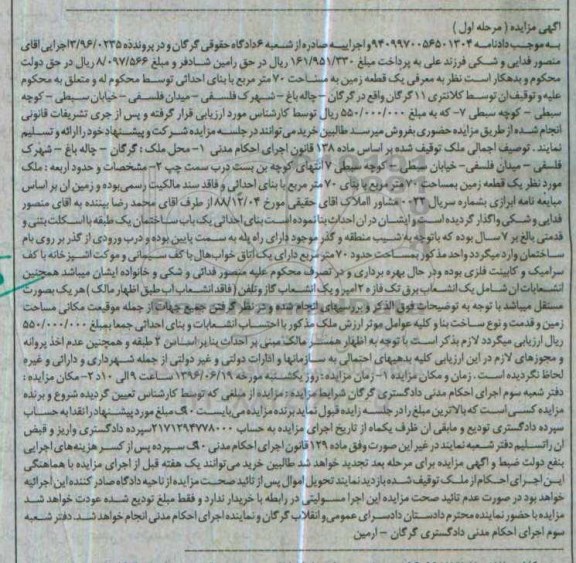 آگهی مزایده ( مرحله اول )
به موجب دادنامه ۹۴۰۹۹۷۰۰۵۶۵۰۱۳۰۴ و اجراییه صادره از شعبه ۶ دادگاه حقوقی گرگان و در پرونده ۳/۹۶/۰۲۳۵ اجرایی آقای
منصور فدایی و شکی فرزند علی به پرداخت مبلغ ۱۶۱/۹۵۱/۳۳۰ ریال در حق رامین شادفر و مبلغ ۸/۰۹۷/۵۶۶ ریال در حق دولت
محکوم و بدهکار است نظر به معرفی یک قطعه زمین به مساحت ۷۰ متر مربع با بنای احداثی توسط محکوم له و متعلق به محکوم
علیه و توقیف آن توسط کلانتری ۱۱ گرگان واقع در گرگان – چاله باغ – شهرک فلسفی – میدان فلسفی – خیابان سیطی – کوچه
سیطی – کوچه سیطی ۷- که به مبلغ ۵۵۰/۰۰۰/۰۰۰ ریال توسط کارشناس مورد ارزیابی قرار گرفته و پس از جری تشریفات قانونی
انجام شده از طریق مزایده حضوری بفروش میرسد طالبین خرید می توانند در جلسه مزایده شرکت و پیشنهاد خود را ارائه و تسلیم
نمایند. توصیف اجمالی ملک توقیف شده بر اساس ماده ۱۳۸ قانون اجرای احکام مدنی ۱- محل ملک : گرگان – چاله باغ – شهرک
فلسفی – میدان فلسفی – خیابان سیطی – کوچه سیطی ۷ انتهای کوچه بن بست درب سمت چپ ۲- مشخصات و حدود اربعه : ملک
مورد نظر یک قطعه زمین بمساحت ۷۰ متر مربع با بنای ۷۰ متر مربع با بنای احداثی و فاقد سند مالکیت رسمی بوده و زمین آن بر اساس
مبایعه نامه ابرازی بشماره سریال ۰۰۲۳ مشاور املاک آقای حقیقی مورخ ۸۸/۱۲/۰۴ از طرف آقای محمد رضا بیننده به آقای منصور
فدایی و شکی واگذار گردیده است و ایشان در آن احداث بنا نموده است بنای احداثی یک باب ساختمان یک طبقه با اسکلت بتنی و
قدمتی بالغ بر ۷ سال بوده که با توجه به شیب منطقه و گذر موجود دارای راه پله به سمت پایین بوده و درب ورودی از گذر بر روی بام
ساختمان وارد میگردد واحد مذکور بمساحت حدود ۷۰ متر مربع دارای یک اتاق خواب هال با کف سیمانی و موکت آشپزخانه با کف
سرامیک و کابینت فلزی بوده و در حال بهره برداری و در تصرف محکوم علیه منصور فدائی و شکی و خانواده ایشان میباشد همچنین
انشعابات آن شامل یک انشعاب برق تک فاز ۲ آمپر و یک انشعاب گاز و تلفن ( فاقد انشعاب آب طبق اظهار مالک ) هر یک بصورت
مستقل میباشد با توجه به توضیحات فوق الذکر و بررسیهای انجام شده و در نظر گرفتن جمیع جهات از جمله موقیعت مکانی مساحت
زمین و قدمت و نوع ساخت بنا و کلیه عوامل موثر ارزش ملک مذکور با احتساب انشعابات و بنای احداثی جمعا بمبلغ ۵۵۰/۰۰۰/۰۰۰
ریال ارزیابی میگردد لازم بذکر است با توجه به اظهار همسر مالک مبنی بر احداث بنا بر اساس ۲ طبقه و همچنین عدم اخذ پروانه
و مجوزهای لازم در این ارزیابی کلیه بدهیهای احتمالی به سازمانها و ادارات دولتی و غیر دولتی از جمله شهرداری و دارائی و غیره
لحاظ نگردیده است. زمان و مکان مزایده ۱- زمان مزایده : روز یکشنبه مورخه ۱۳۹۶/۰۶/۱۹ ساعت ۹ الی ۱۰ د ۲- مکان مزایده :
دفتر شعبه سوم اجرای احکام مدنی دادگستری گرگان شرایط مزایده : مزایده از مبلغی که توسط کارشناس تعیین گردیده شروع و برنده
مزایده کسی است که بالاترین مبلغ را در جلسه مزایده قبول نماید برنده مزایده می بایست ۱۰% مبلغ مورد پیشنهاد را نقدا به حساب
سپرده دادگستری تودیع و مابقی آن ظرف یکماه از تاریخ اجرای مزایده به حساب ۲۱۷۱۲۹۴۷۷۸۰۰۰ سپرده دادگستری واریز و قبض
آن را تسلیم دفتر شعبه نمایند در غیر این صورت وفق ماده ۱۲۹ قانون اجرای احکام مدنی ۱۰% سپرده پس از کسر هزینه های اجرایی
بنفع دولت ضبط و آگهی مزایده برای مرحله بعد تجدید خواهد شد طالبین خرید می توانند یک هفته قبل از اجرای مزایده با هماهنگی
این اجرای احکام از ملک توقیف شده بازدید نمایند تحویل اموال پس از تائید صحت مزایده از ناحیه دادگاه صادر کننده این اجرائیه
خواهد بود در صورت عدم تائید صحت مزایده این اجرا مسولیتی در رابطه با خریدار ندارد و فقط مبلغ تودیع شده عودت خواهد شد
مزایده با حضور نماینده محترم دادستان دادسرای عمومی و انقلاب گرگان و نماینده اجرای احکام مدنی انجام خواهد شد. دفتر شعبه
سوم اجرای احکام مدنی دادگستری گرگان – آرمین